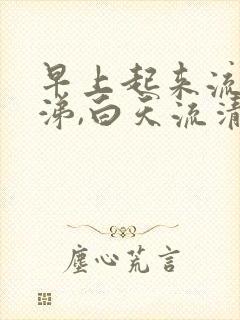 早上起来流
涕,白天流清
尘心荒言